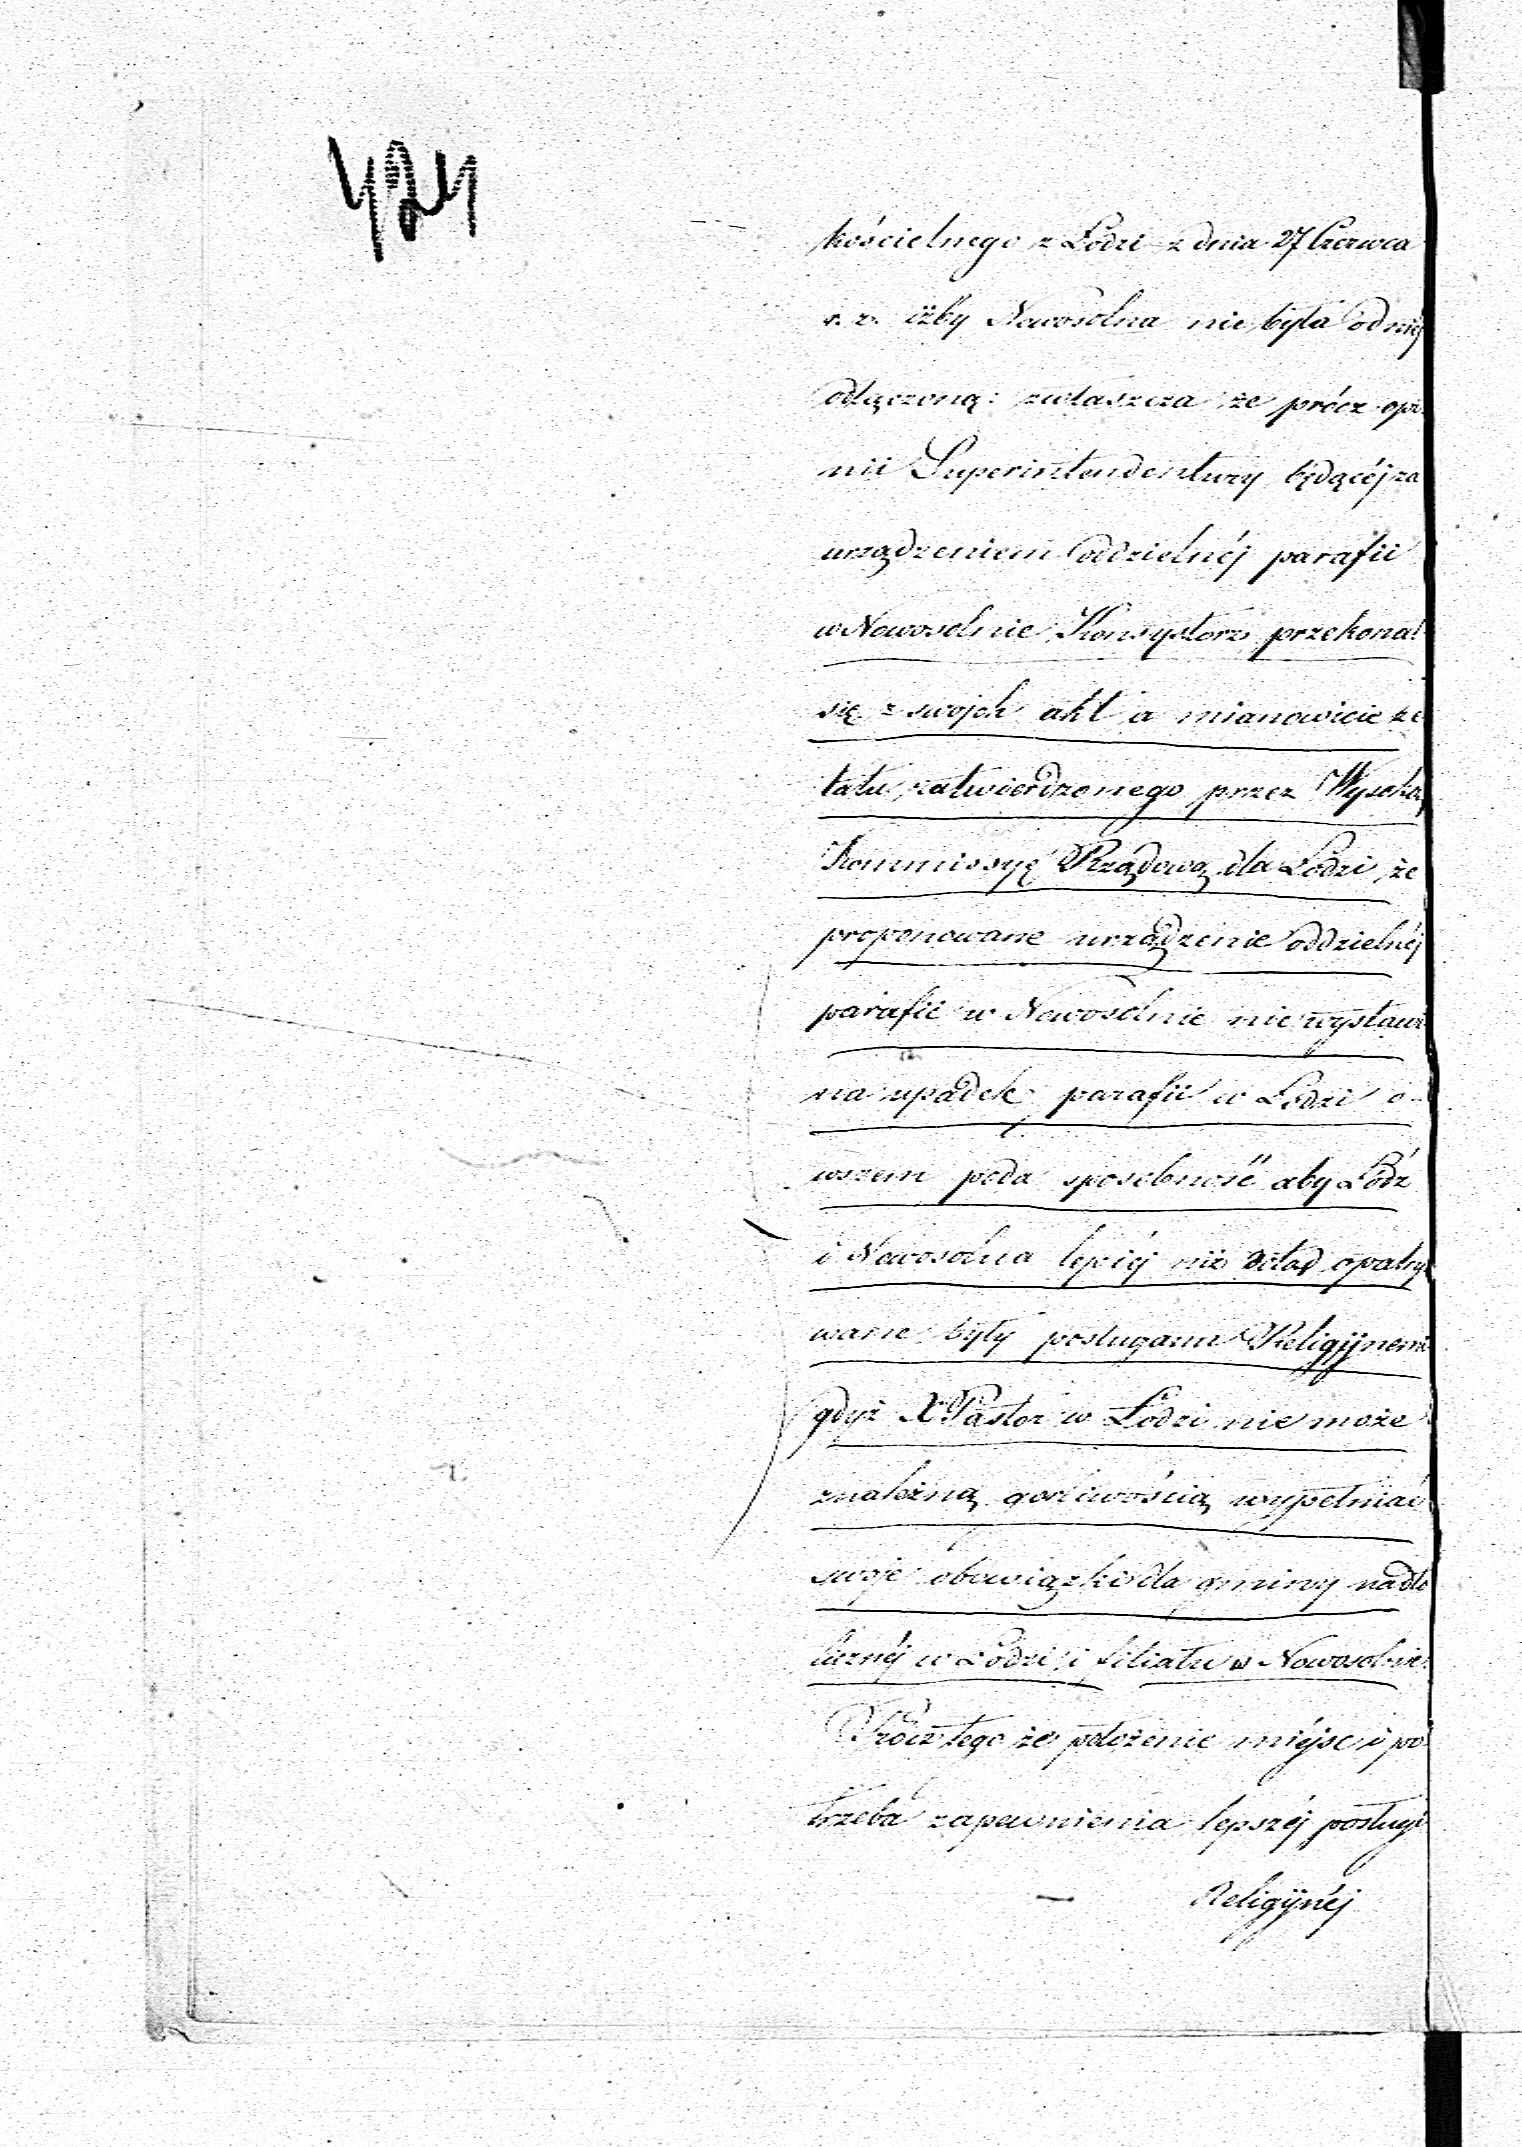 424
kościelnego z Łodzi z dnia 27 Czerwca
r. z. iżby Nowosolna nie była od niéj
odłączoną: zwłaszcza że prócz opi
nii Superintendentury będącéj za
urządzeniem oddzielnéj parafii
w Nowosolnie Konsystorz przekonał
się z swojch akt a mianowicie ze
tatu zatwierdzonego przez Wysoką
Kommissyę Rządową dla Łodzi, że
proponowane urządzenie oddzielnéj
parafii w Nowosolnie nie wystawi
na upadek parafii w Łodzi o-
wszem poda sposobność aby Łódz
i Nowosolna lepiéj niż dotąd opatry
wane były posługami Religijnemi
gdyż X Pastor w Łodzi nie może
znależną gorliwością wypełniać
swoje obowiązki dla gminy nadto
licznéj w Łodzi i filiału w Nowosolnie.
Prócz tego że położenie miéjsc i po
trzeba zapewnienia lepszéj posługi
Religijnéj